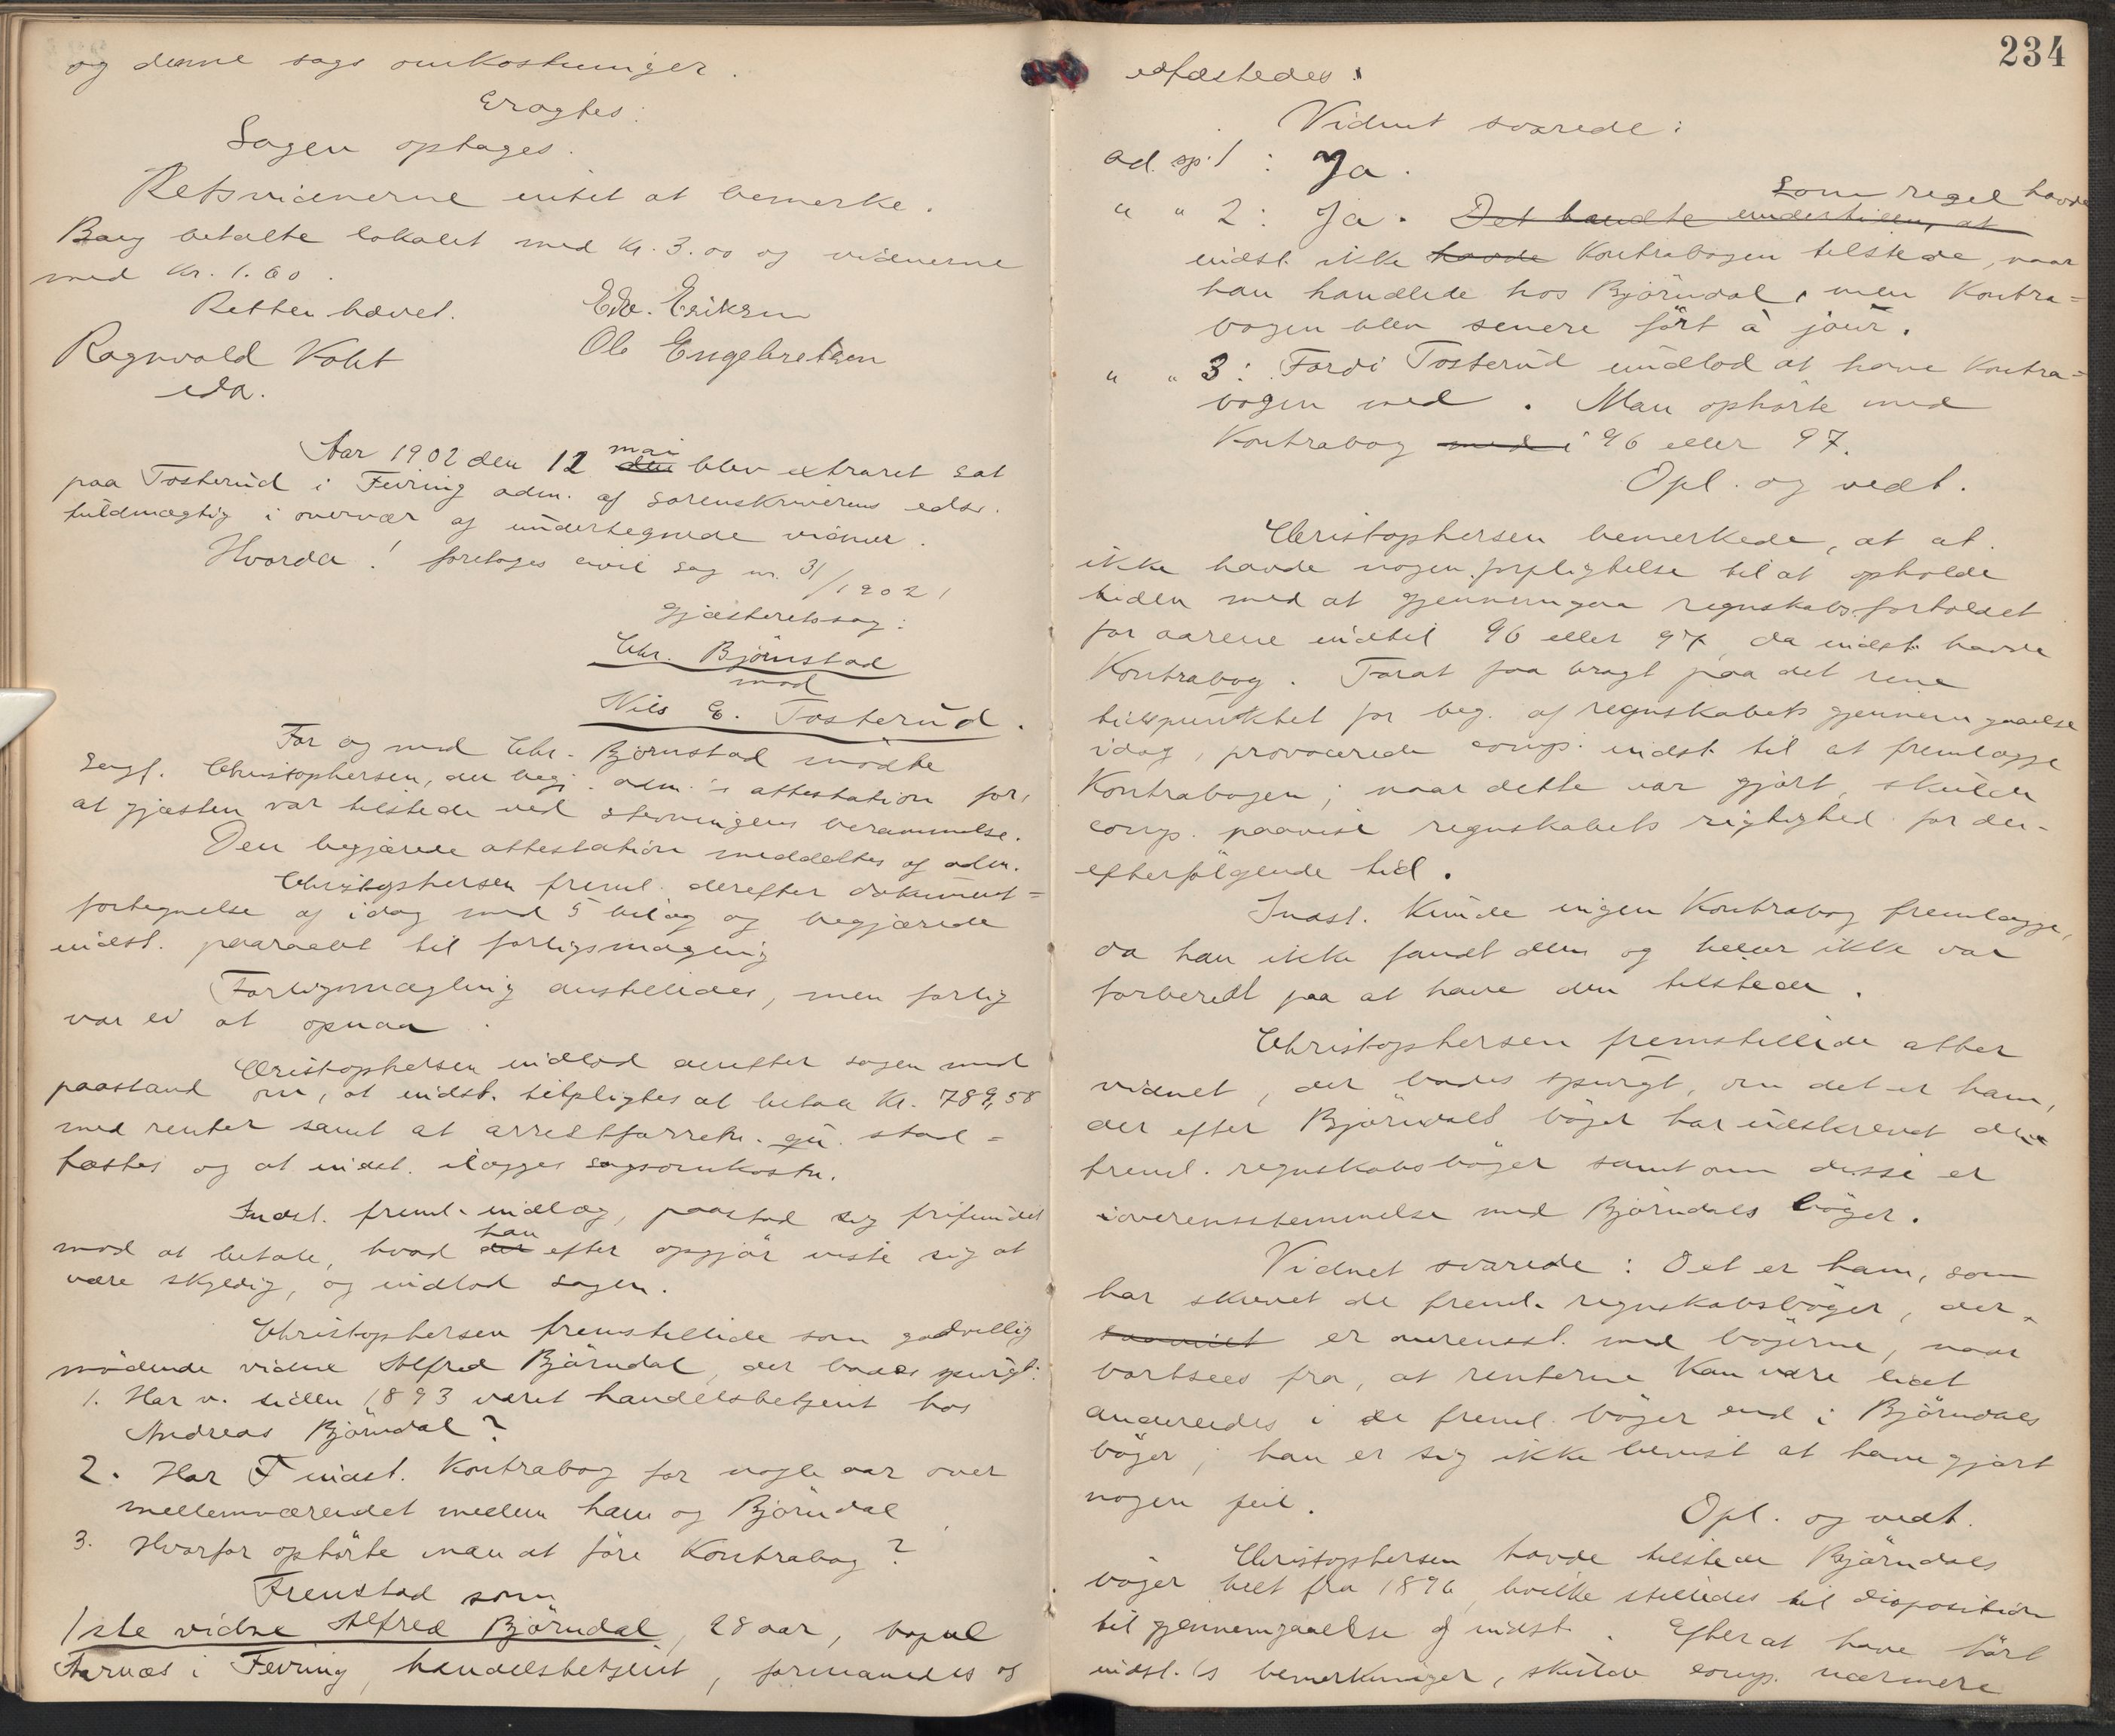 og denne sags omkostninger.
Eragtes:
Sagen optages.
Retsvidnerne intet at bemerke.
Berg betalte lokalet med Kr. 3.00 og vidnerne
med Kr. 1.60.
Retten hævet.
Edv. Eriksen
Ragnvald Vokt
Ole Engebretsen
eda.
Aar 1902 den 12 mai den blev extraret sat
paa Tosterud i Feiring adm. af sorenskriverens edsv.
fuldmægtig i overvær af undertegnede vidner.
Hvorda! foretoges civil sag nr. 31/1902,
gjæsteretssag:
Chr. Björnstad
mod
Nils E. Tosterud.
For og med Chr. Björnstad mödte
sagf. Christophersen, der begj. adm.'s attestation for,
at gjæsten var tilstede ved stevningens berammelse.
Den begjærede attestation meddeltes af adm.
Christophersen freml. derefter dokument=
fortegnelse af idag med 5 bilag og begjærede
indst. paaraabt til forligsmægling
Forligsmægling anstilledes, men forlig
var ei at opnaa.
Christophersen indlod derefter sagen med
paastand om, at indst. tilpligtes at betale Kr. 789,58
med renter samt at arrestforretn. gú. stad=
fæstes og at indst. ilægges sagsomkostn.
Indst. freml. indlæg, paastod sig frifundet
mod at betale, hvad der han efter opgjör viste sig at
være skyldig, og indlod sagen.
Christophersen fremstillede som godvillig
mödende vidne Alfred Björndal, der bades spurgt:
1. Har v. siden 1893 været handelsbetjent hos
Andreas Björndal?
2. Har indst. Kontrabog for nogle aar over
mellemværendet mellem ham og Björndal
3. Hvorfor ophörte man at före Kontrabog?
Fremstod som
1ste vidne Alfred Björndal, 28 aar, bopæl
Aarnæs i Feiring, handelsbetjent, formanedes og
234
edfæstedes:
Vidnet svarede:
ad. sp. 1: Ja.
" " 2: Ja. Det hændte undertiden, at Som regel havde
indst. ikke havde Kontrabogen tilstede, naar
han handlede hos Björndal, men Kontra=
bogen blev senere fört à jour.
" " 3: Fordi Tosterud undlod at have Kontra=
bogen med. Man ophörte med
Kontrabog med i 96 eller 97.
Opl. og vedt.
Christophersen bemerkede, at
ikke havde nogen forpligtelse til at opholde
tiden med at gjennemgaa regnskabsforholdet
for aarene indtil 96 eller 97, da indst. havde
Kontrabog. Forat faa bragt paa det rene
tidspunktet for beg. af regnskabets gjennemgaaelse
idag, provocerede comp. indst. til at fremlægge
Kontrabogen; naar dette var gjort, skulde
comp. paavise regnskabets rigtighed for den
efterfölgende tid.
Indst. kunde ingen Kontrabog fremlægge,
da han ikke fandt den og heller ikke var
forberedt paa at have den tilstede.
Christophersen fremstillede atter
vidnet, der bades spurgt, om det er ham,
der efter Björndals böger har udskrevet de
freml. regnskabsböger samt om disse er
i overensstemmelse med Björndals böger.
Vidnet svarede: Det er ham, som
har skrevet de freml. regnskabsböger, der
er overensst. med bögerne, naar
bortsees fra, at renterne kan være lidt
anderledes i de freml. böger end i Björndals
böger; han er sig ikke bevist at have gjort
nogen feil.
Opl. og vedt.
Christophersen havde tilstede Björndals
böger helt fra 1896, hvilke stilledes til disposition
til gjennemgaaelse af indst. Efter at have hört
indst.'s bemerkninger, skulde comp. nærmere